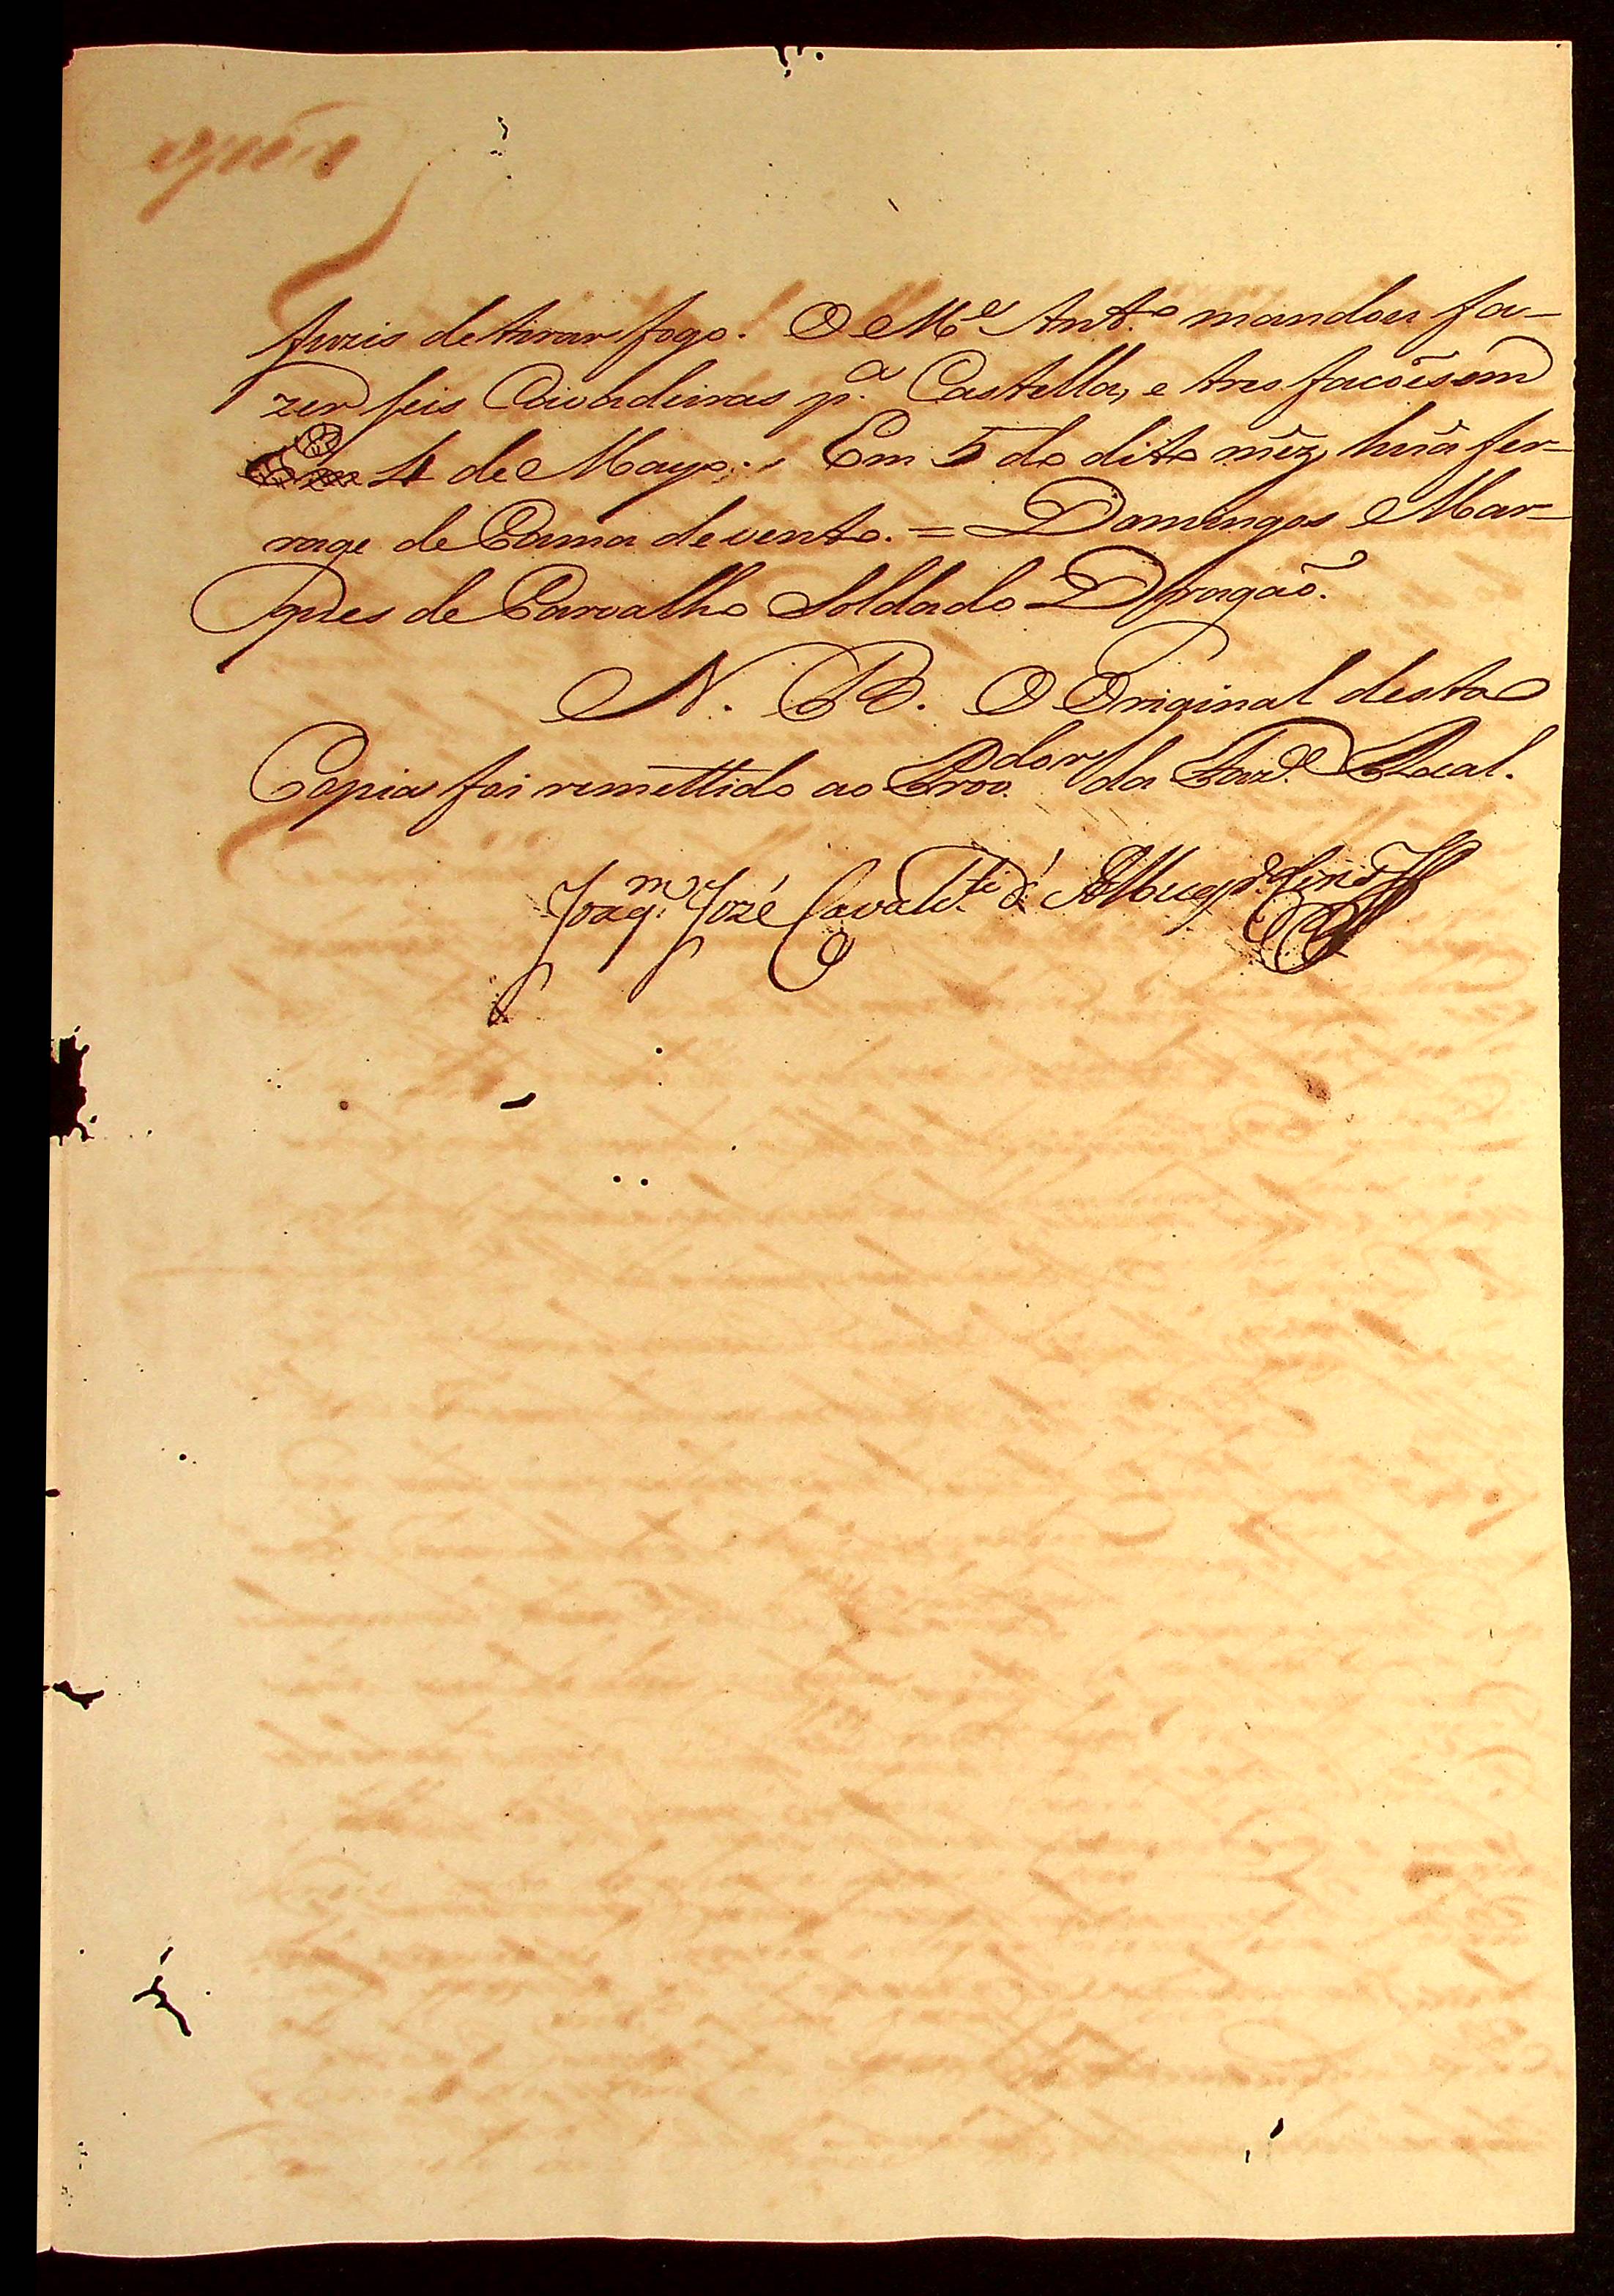 fuzis de tirar fogo. O M.e Ant.o mandou fa-
zer seis p.a Castella, e tres facões em
4 de Mayo. Em 5 do dito mez, hũa fer-
rage de Cama de vento. = Domingos Mar-
ques de Carvalho Soldado Dragaõ.
N. B. O Original desta
Copia foi remettido ao Prov.dor da Faz.da Real.
Joaq.m José Cavalc.ti d' Albuq.e Lins